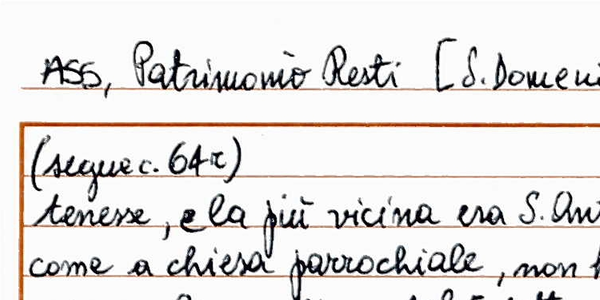 ASS, Patrimonio Resti [S. Domeni
(segue c. 64r)
tenesse, e la più vicina era S. An
come a chiesa parrochiale, non